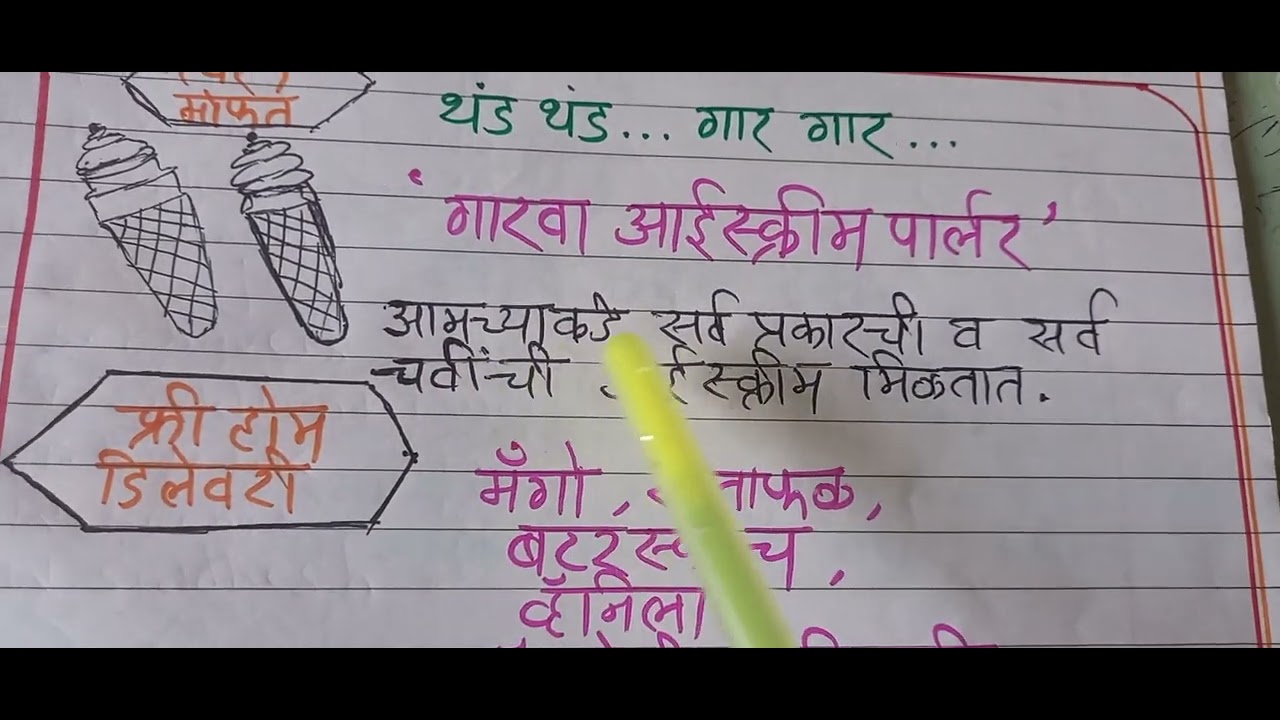 मोफत
थंड थंड... गार गार...
'गारवा आईस्क्रीम पार्लर'
आमच्याकडे सर्व प्रकारची व सर्व
चवींची मिळतात.
फ्री होम
डिलेवरी
मँगो,
व्हॅनिला